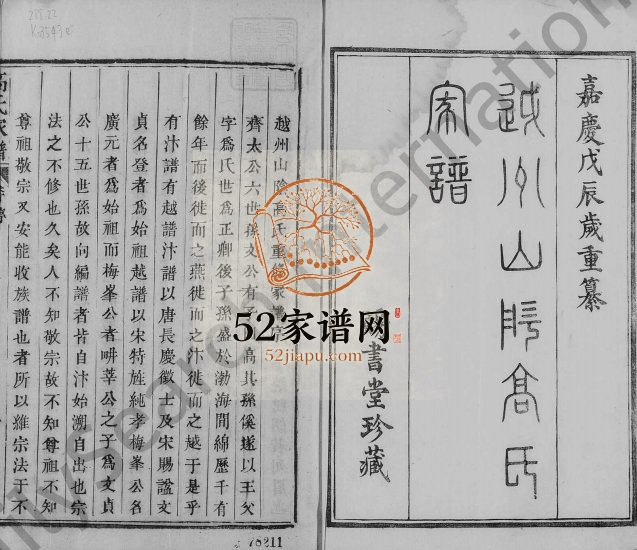 嘉慶戊辰歲重纂
越州山陰高氏
家譜
書堂珍藏
越州山陰高氏重修家譜序
齊太公六世孫文公有子高其孫傒遂以王父
字爲氏世爲正卿後子孫盛於渤海間綿歷千有
餘年而後徙而之燕徙而之汴徙而之越于是乎
有汴譜有越譜汴譜以唐長慶徵士及宋賜諡文
貞名登者爲始祖越譜以宋特旌純孝梅峯公名
廣元者爲始祖而梅峯公者畊莘公之子爲文貞
公十五世孫故向編譜者皆自汴始溯自出也宗
法之不修也久矣人不知敬宗故不知尊祖不知
尊祖敬宗又安能收族譜也者所以維宗法于不
高氏家譜
52家谱网
52jiapu.com
FamilySearch International
78211